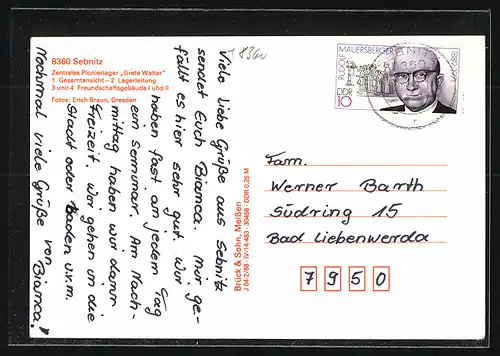 8360 Sebnitz
Zentrales Pionierlager „Grete Walter"
1 Gesamtansicht – 2 Lagerleitung,
3 und 4 Freundschaftsgebäude I und II
Fotos: Erich Braun, Dresden
8360
Viele liebe Grüße aus Sebnitz
sendet Euch Bianca. Mir ge-
fällt es hier sehr gut. Wir
haben fast an jedem Tag
ein Seminar. Am Nach-
mittag haben wir dann
Freizeit. Wir gehen in die
Stadt oder baden u.v.m.
Nochmal viele Grüße von
Bianca!
Brück & Sohn, Meißen
J 04-2/88 · IV-14-483 · 30458 · DDR 0,25 M
RUDOLF
MAUERSBERGER
DDR
10
Fam.
Werner Barth
Südring 15
Bad Liebenwerda
7950